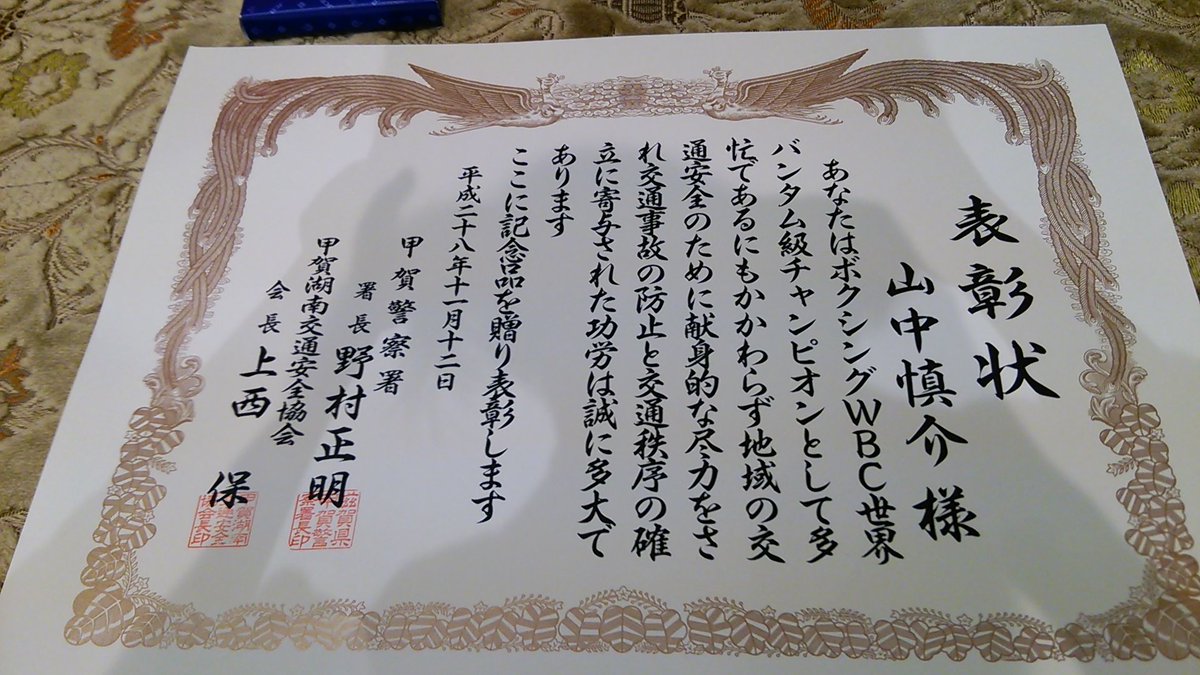 表彰状
山中慎介様
あなたはボクシングWBC世界
バンタム級チャンピオンとして多
忙であるにもかかわらず地域の交
通安全のために献身的な尽力をさ
れ交通事故の防止と交通秩序の確
立に寄与された功労は誠に多大で
あります
ここに記念品を贈り表彰します
平成二十八年十一月十二日
甲賀警察署
署長 野村正明
甲賀湖南交通安全協会
会長 上西 保